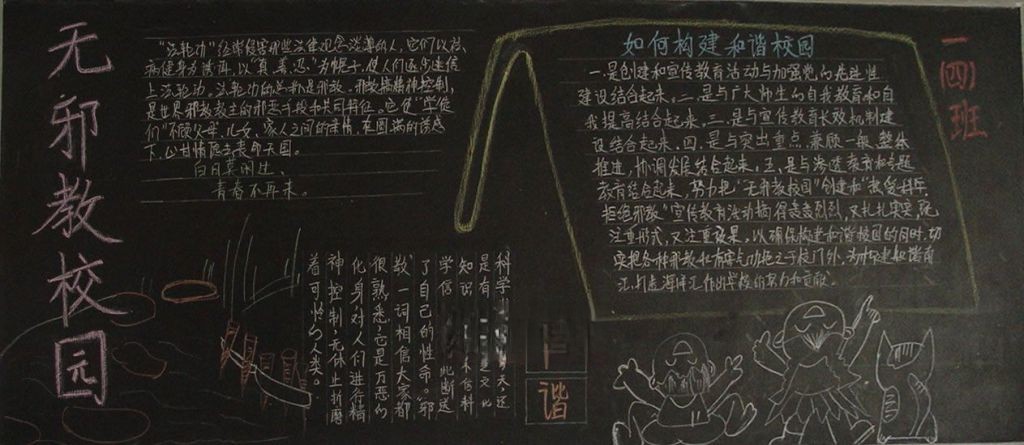 无邪教校园
"法轮功"经常侵害那些法律观念淡薄的人,它们以祛
病健身为诱饵,以"真、善、忍"为幌子,使人们逐步迷信
上法轮功。法轮功的 是邪教搞精神控制,
是世界邪教教主的邪恶手段和共同特征。它使"学徒
们"不顾父母、儿女、家人之间的亲情,在圆满的诱惑
下,心甘情愿去表命天国。
白日莫闲过,
青春不再来。
科学 天还
是有 文化
知识 不信科
学信 此断送
了自己的性命。"邪
教"一词相信大家都
很熟悉:它是万恶的
化身对人们进行精
神控制,无休止折磨
着可怜的人类。
谐
如何构建和谐校园
一.是创建和宣传教育活动与加强党的先进性
建设结合起来。二.是与广大师生的自我教育和自
我提高结合起来。三.是与宣传教育长效机制建
设结合起来。四.是与突出重点,兼顾一般,整体
推进,协调发展结合起来。五.是与渗透教育和专题
教育结合起来。努力把"无邪教校园"创建和"崇尚科学
拒绝邪教"宣传教育活动搞得轰轰烈烈,又扎扎实实,既
注重形式,又注重效果,以确保构建和谐校园的同时,切
实把各种邪教和有害气功拒之于校门外,为构建和谐
汇 海 汇作出学校的努力和贡献。
一(四)班